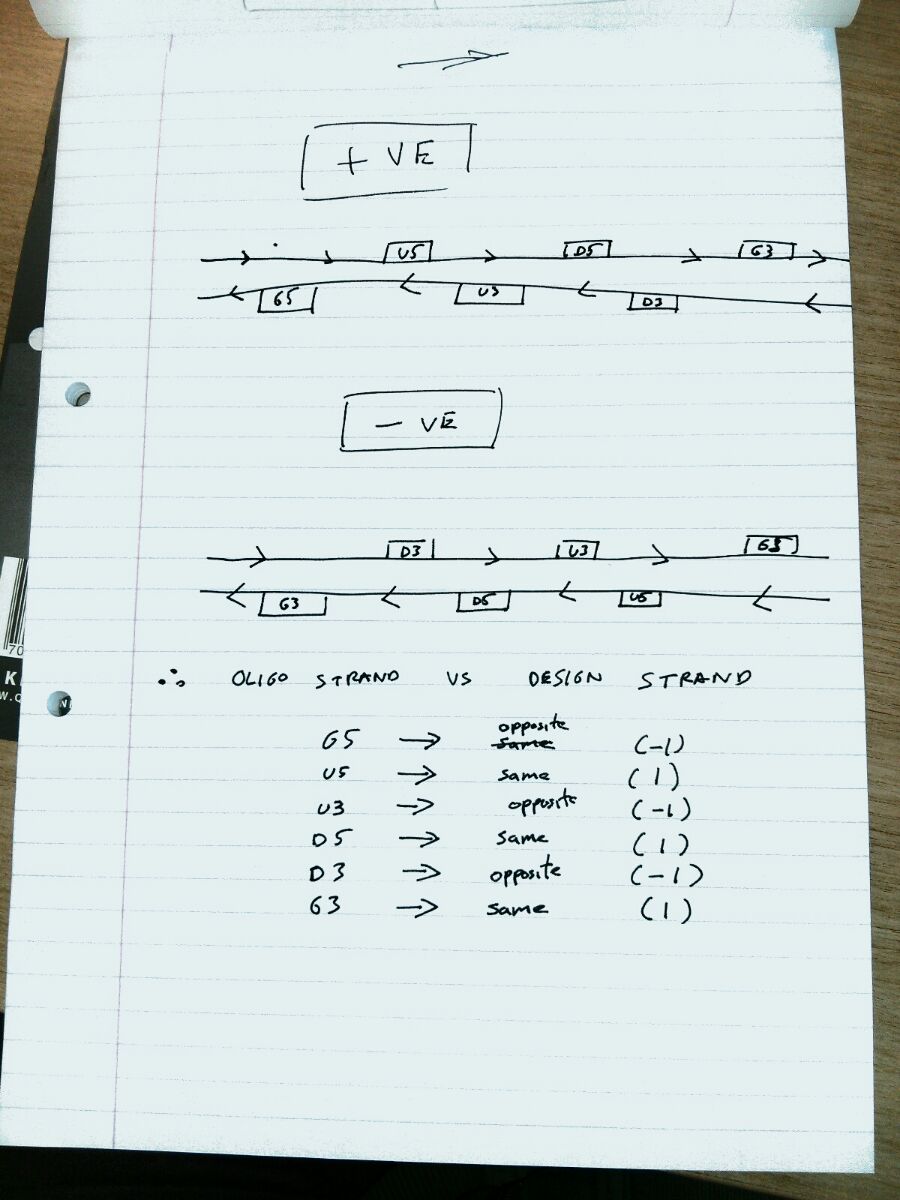 + VE
U5 D5 G3
G5 U3 D3
- VE
D3 U3 G5
G3 D5 U5
∴ OLIGO STRAND VS DESIGN STRAND
opposite
G5 → same (-1)
U5 → same (1)
U3 → opposite (-1)
D5 → same (1)
D3 → opposite (-1)
G3 → same (1)
70
K